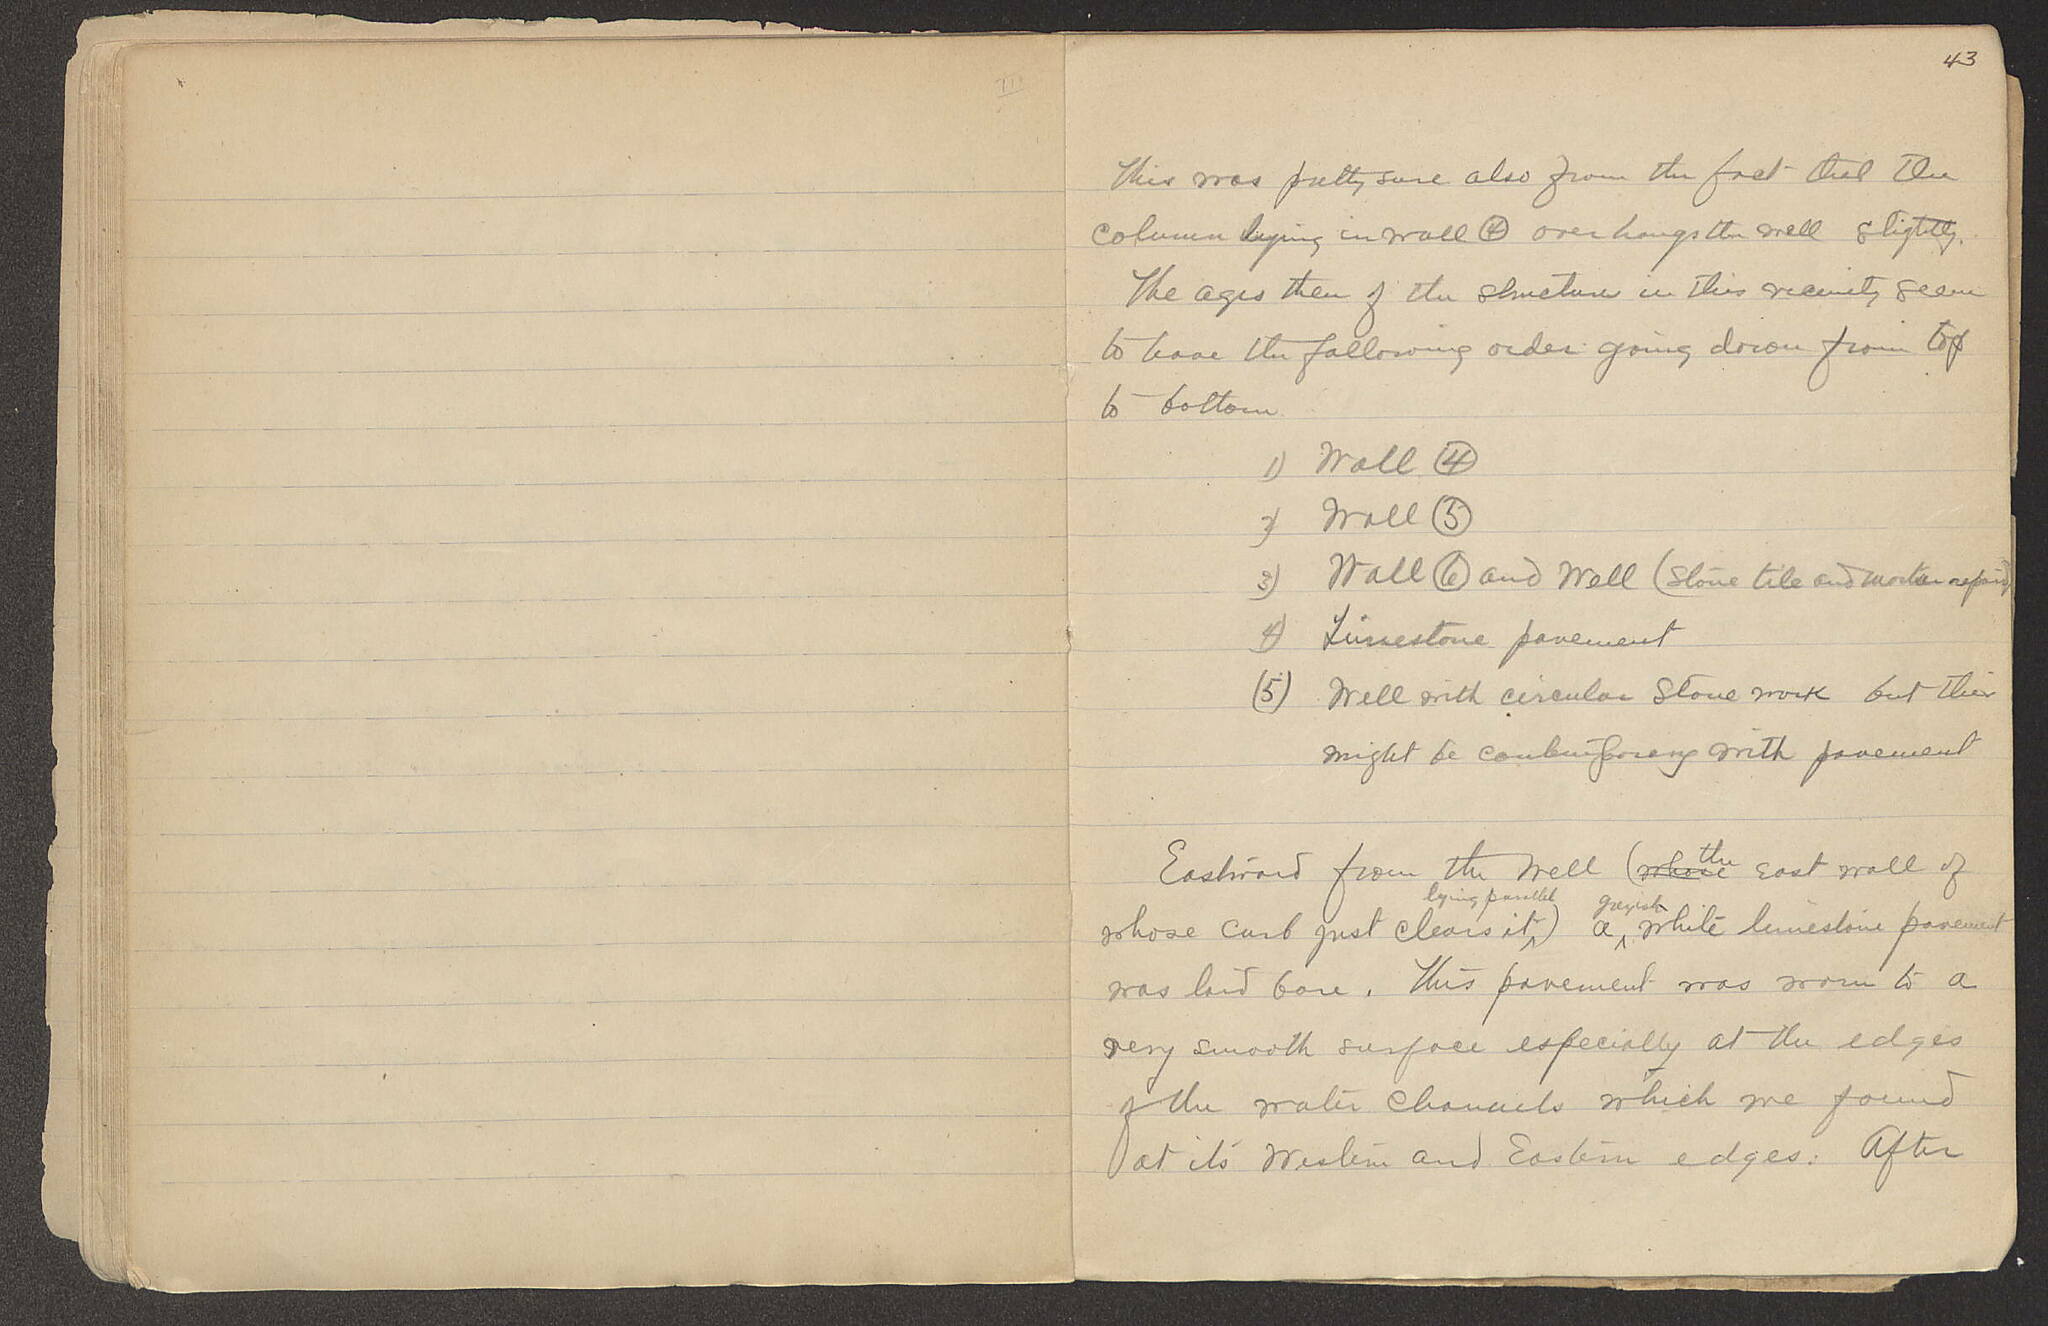 43
This was pretty sure also from the fact that the
column lying in wall ④ overhangs the well slightly.
The ages then of the structures in this vicinity seem
to have the following order going down from top
to bottom
1) Wall ④
2) Wall ⑤
3) Wall ⑥ and Well (stone tile and mortar repair)
4) Limestone pavement
(5) Well with circular stone work but this
might be contemporary with pavement
Eastward from the Well (whose the east wall of
lying parallel grayish
whose curb just clears it) a white limestone pavement
was laid bare. This pavement was worn to a
very smooth surface especially at the edges
of the water channels which we found
at its Western and Eastern edges. After